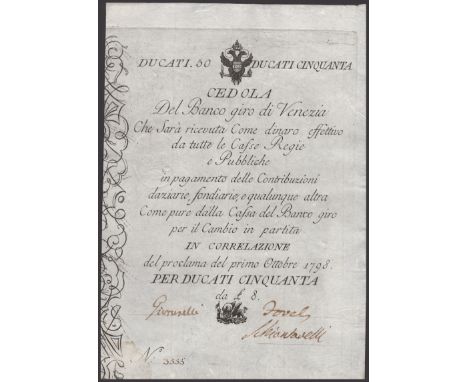 DUCATI. 50 DUCATI CINQUANTA
CEDOLA
Del Banco giro di Venezia
Che Sarà ricevuta Come dinaro effettivo
da tutte le Casse Regie
e Pubbliche
in pagamento delle Contribuzioni
daziarie, fondiarie, e qualunque altra
Come pure dalla Cassa del Banco giro
per il Cambio in partita
IN CORRELAZIONE
del proclama del primo Ottobre 1798.
PER DUCATI CINQUANTA
da £ 8.
N.º 3335